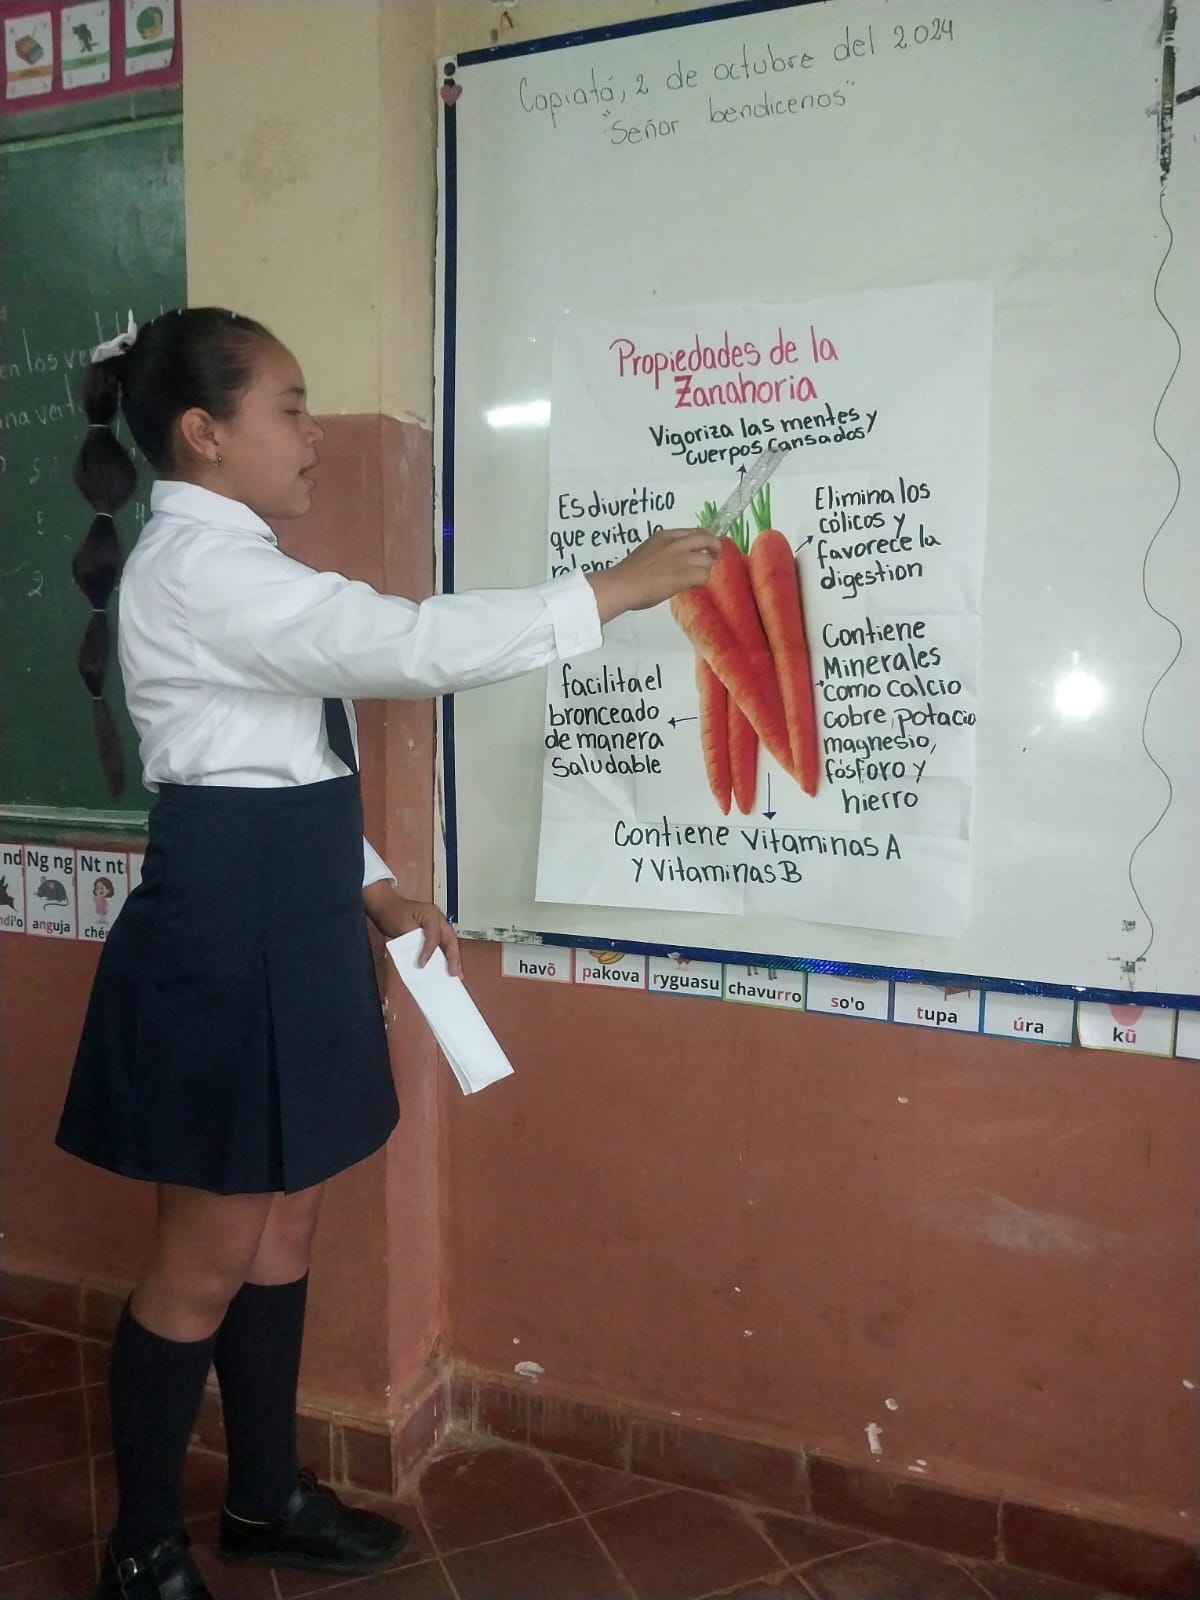 Capiatá, 2 de octubre del 2024
"Señor bendicenos"
Propiedades de la
Zanahoria
Vigoriza las mentes y
cuerpos cansados
Es diurético
que evita la
Elimina los
cólicos y
favorece la
digestion
facilita el
bronceado
de manera
Saludable
Contiene
Minerales
como calcio
cobre, potacio
magnesio,
fósforo y
hierro
Contiene vitaminas A
y vitaminas B
en los
una
5
2
4
nd
Ng ng
anguja
Nt nt
havõ
pakova
ryguasu
chavurro
so'o
tupa
úra
kũ